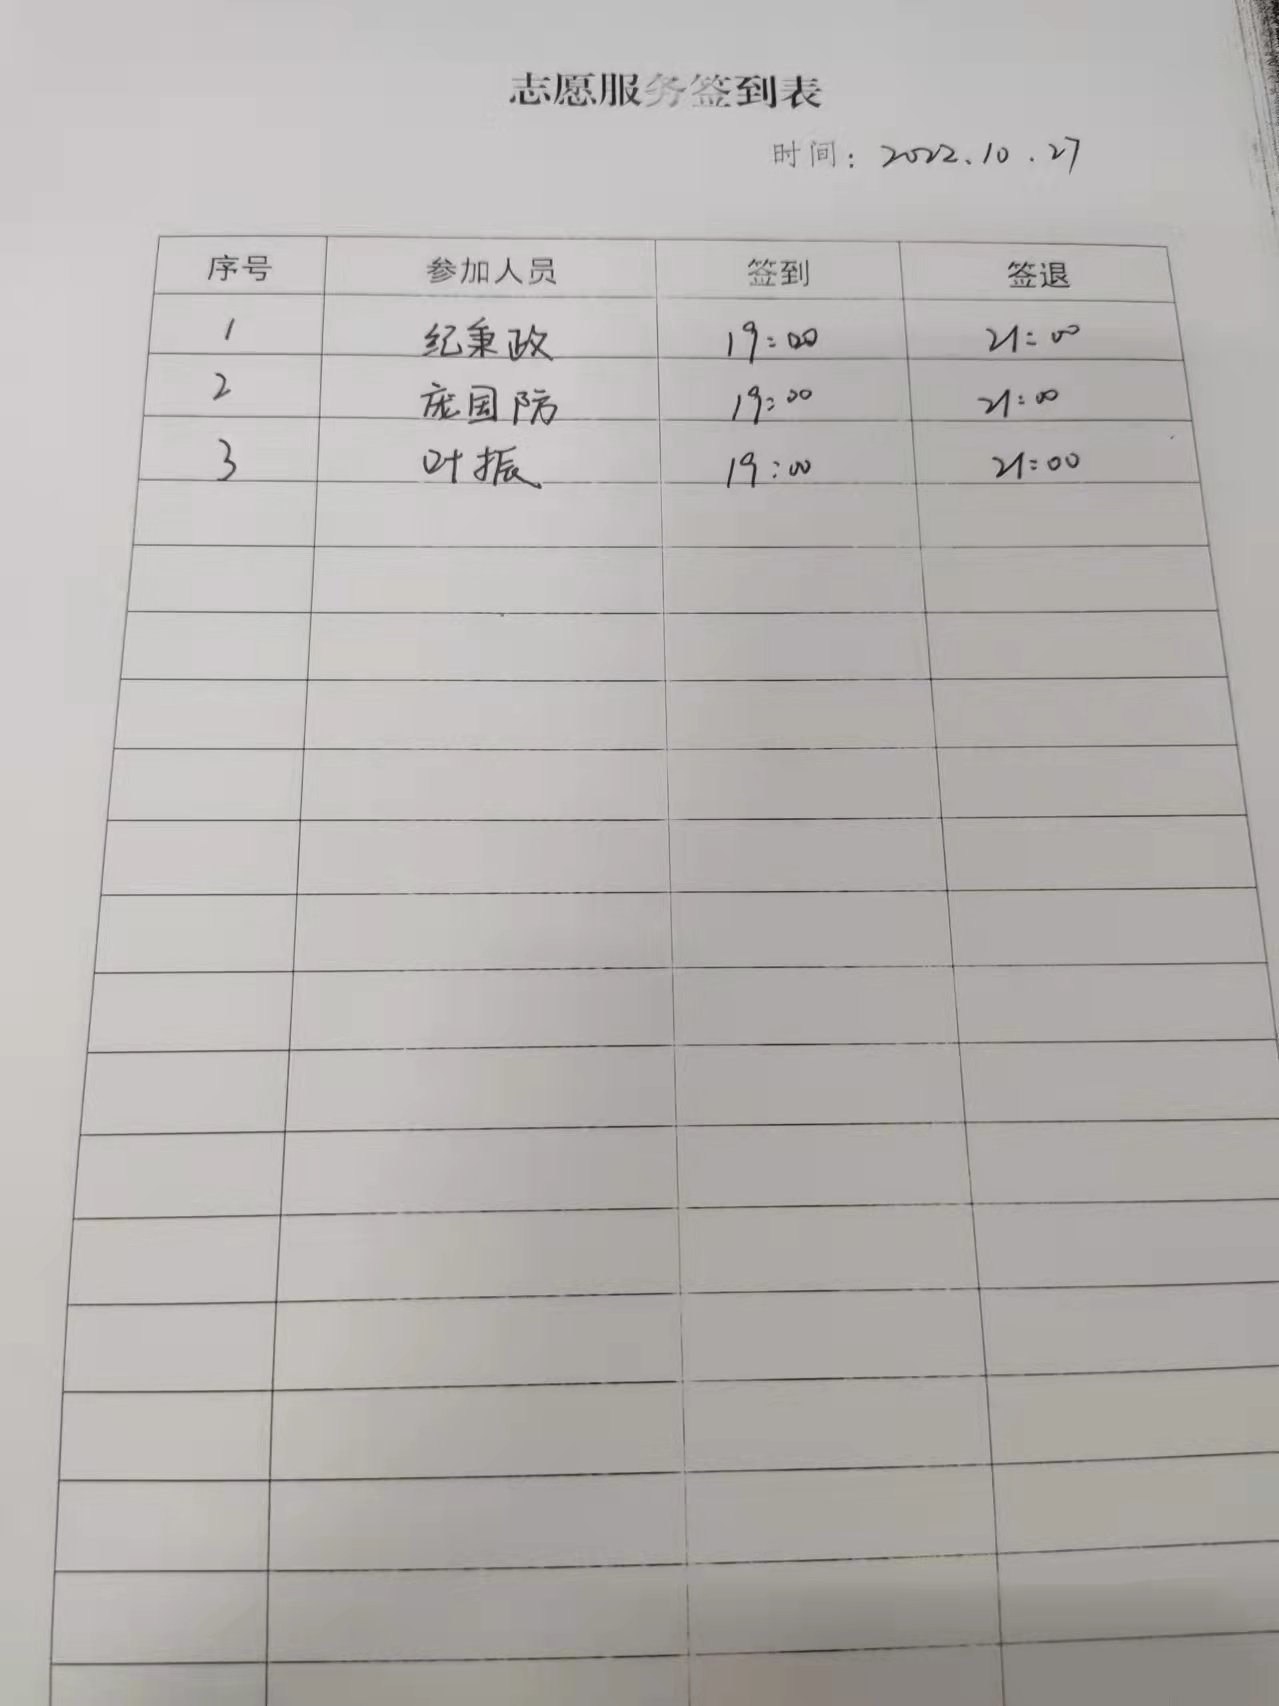 志愿服务签到表
时间：2022.10.27
序号 参加人员 签到 签退
1 纪秉政 19:00 21:00
2 庞国防 19:00 21:00
3 叶振 19:00 21:00